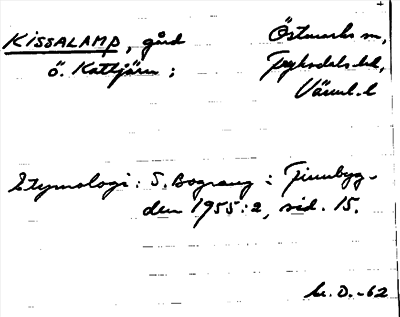 KISSALAMP, gård
Östmarks sn,
ö. Kattjärn;
Fryksdals hd,
Värml. l
Etymologi: S. Bograng: Finnbyg-
den 1955:2, sid. 15.
D.-62